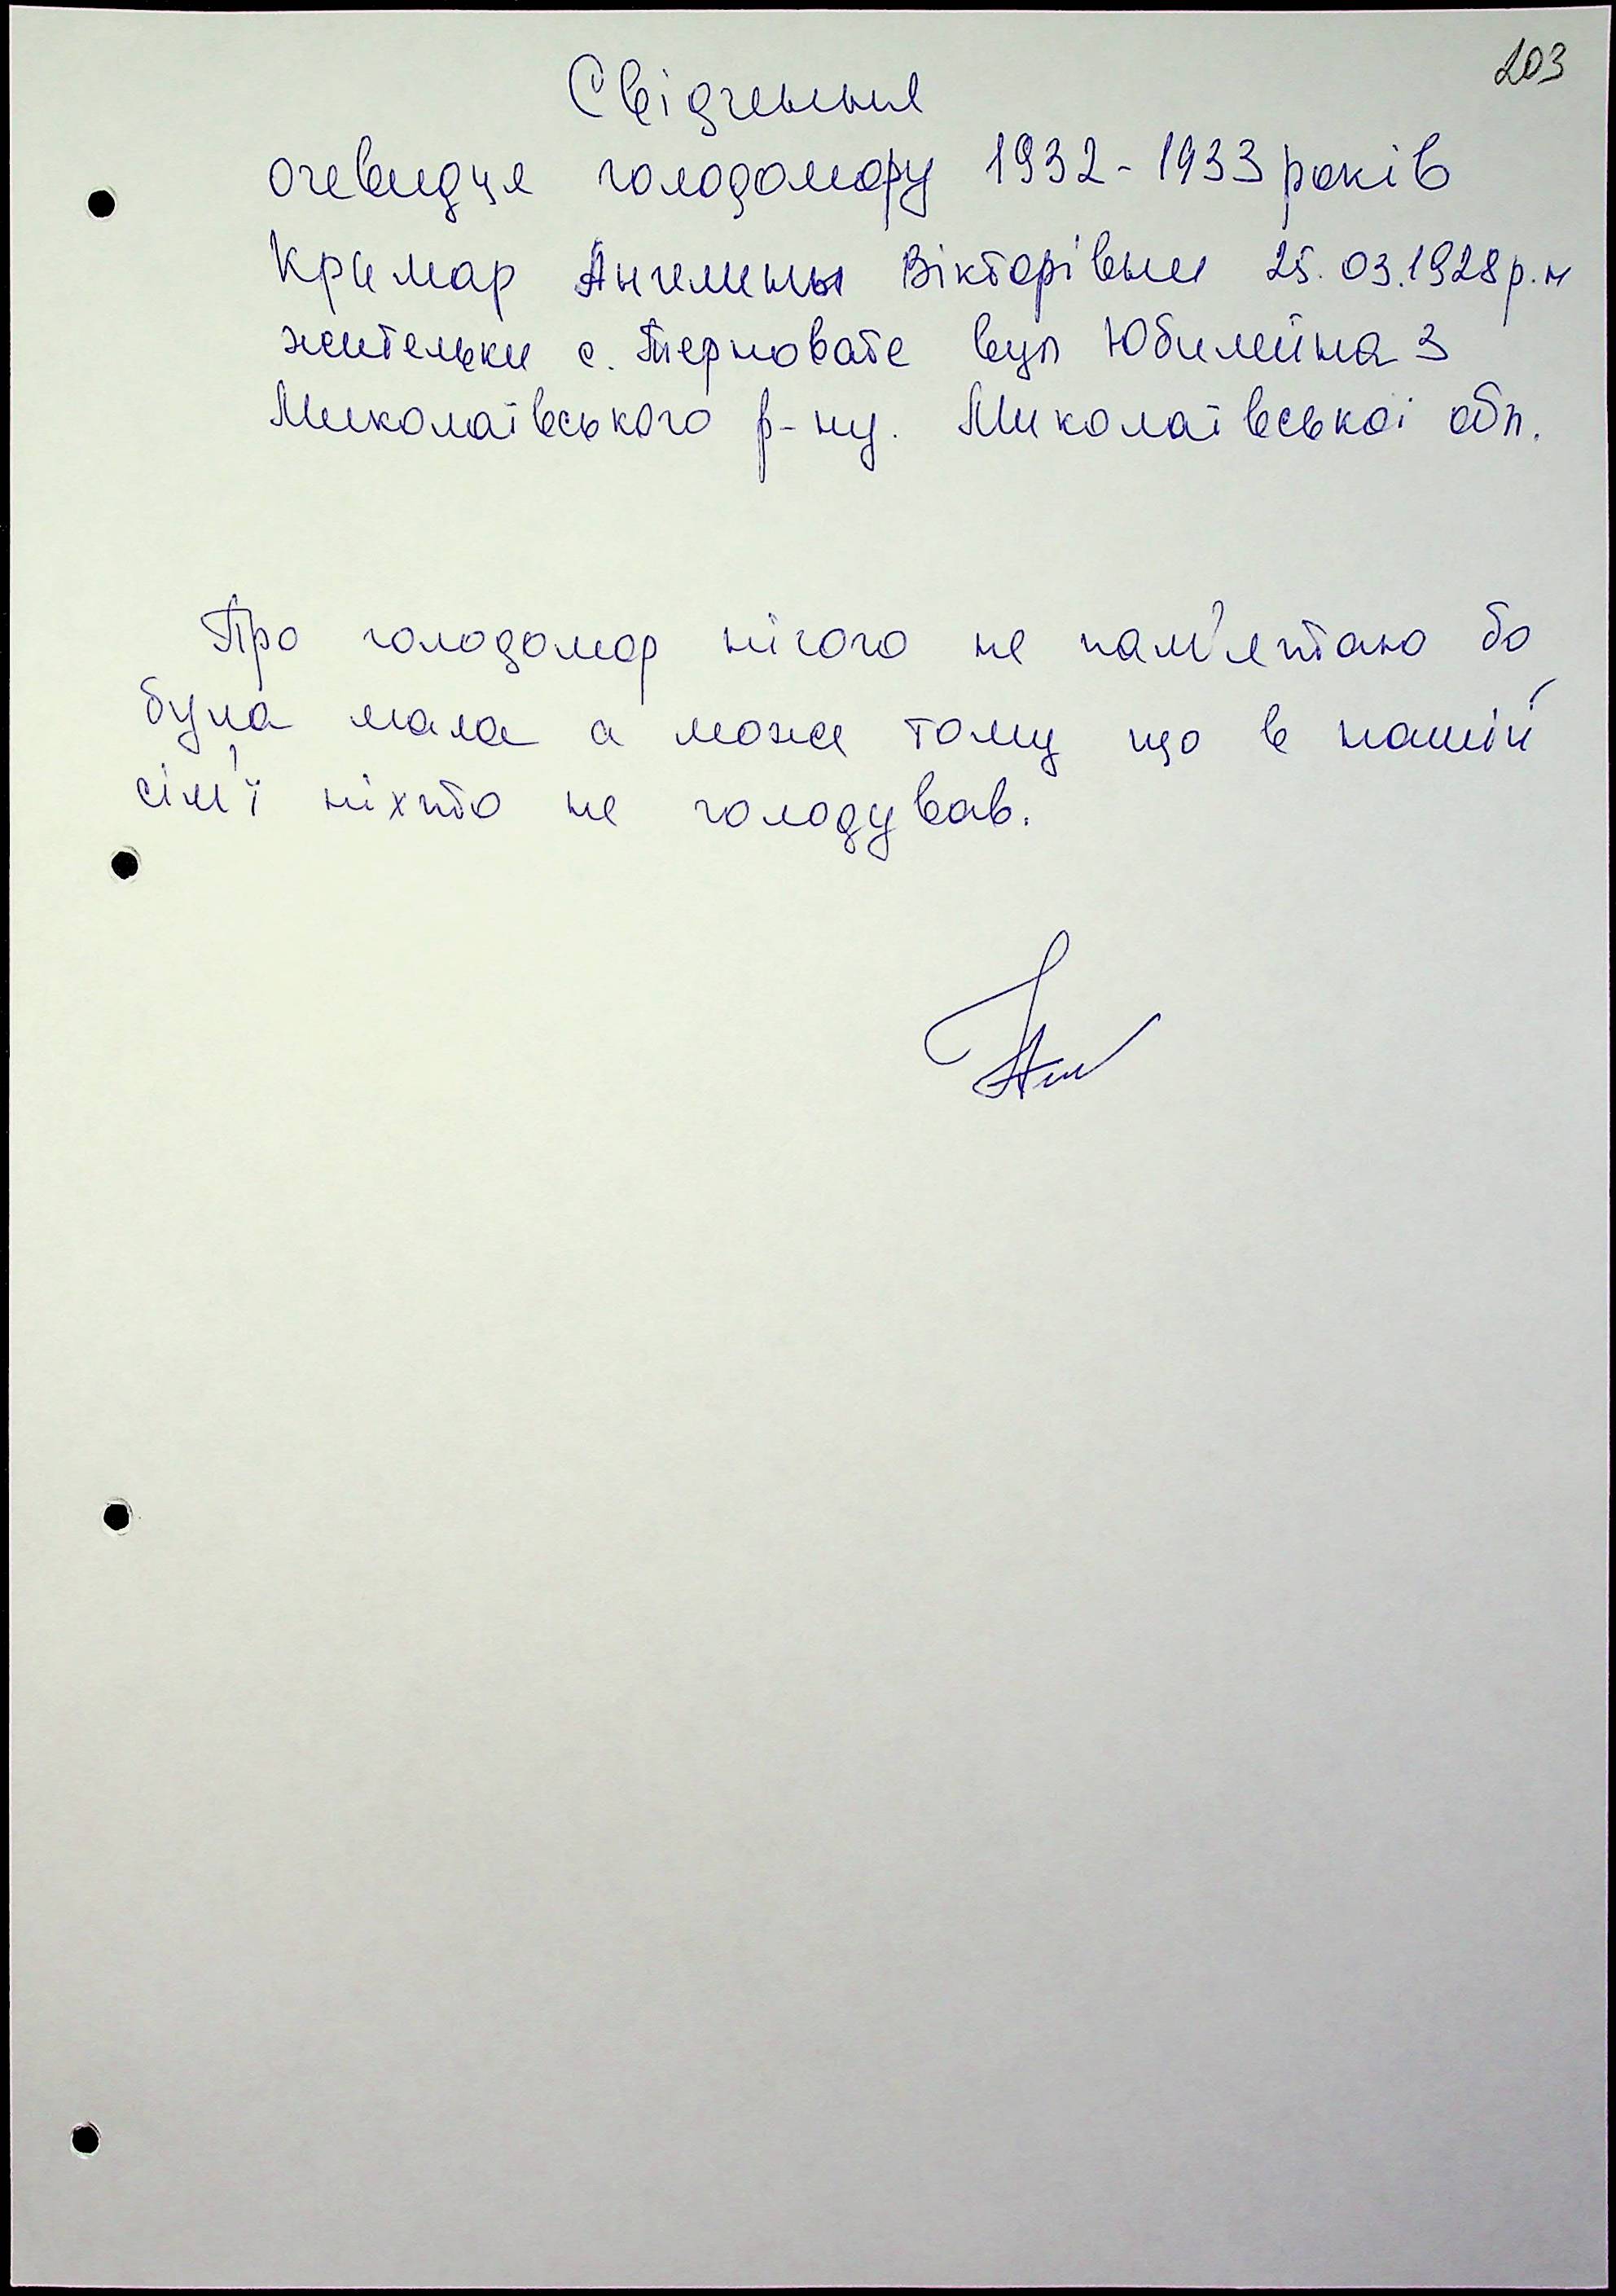 203
Свідчення
очевидця голодомору 1932-1933 років
Кримар Ангелины Вікторівни 25.03.1928 р.н
жительки с. Терновате вул Юбилейна 3
Миколаївського р-ну. Миколаївської обл.
Про голодомор нічого не пам'ятаю бо
була мала а може тому що в нашій
сім'ї ніхто не голодував.